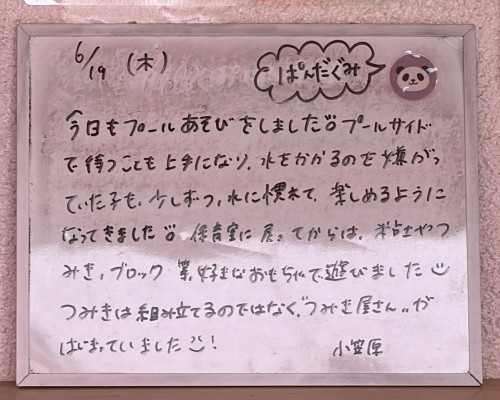 6/19 (木)
ぱんだぐみ
今日もプールあそびをしました プールサイド
で待つことも上手になり、水をかかるのを嫌がっ
ていた子も、少しずつ、水に慣れて、楽しめるように
なってきました 保育室に戻ってからは、粘土やつ
みき、ブロック 等、好きなおもちゃで遊びました
つみきは組み立てるのではなく、"つみき屋さん"が
はじまっていました!
小笠原